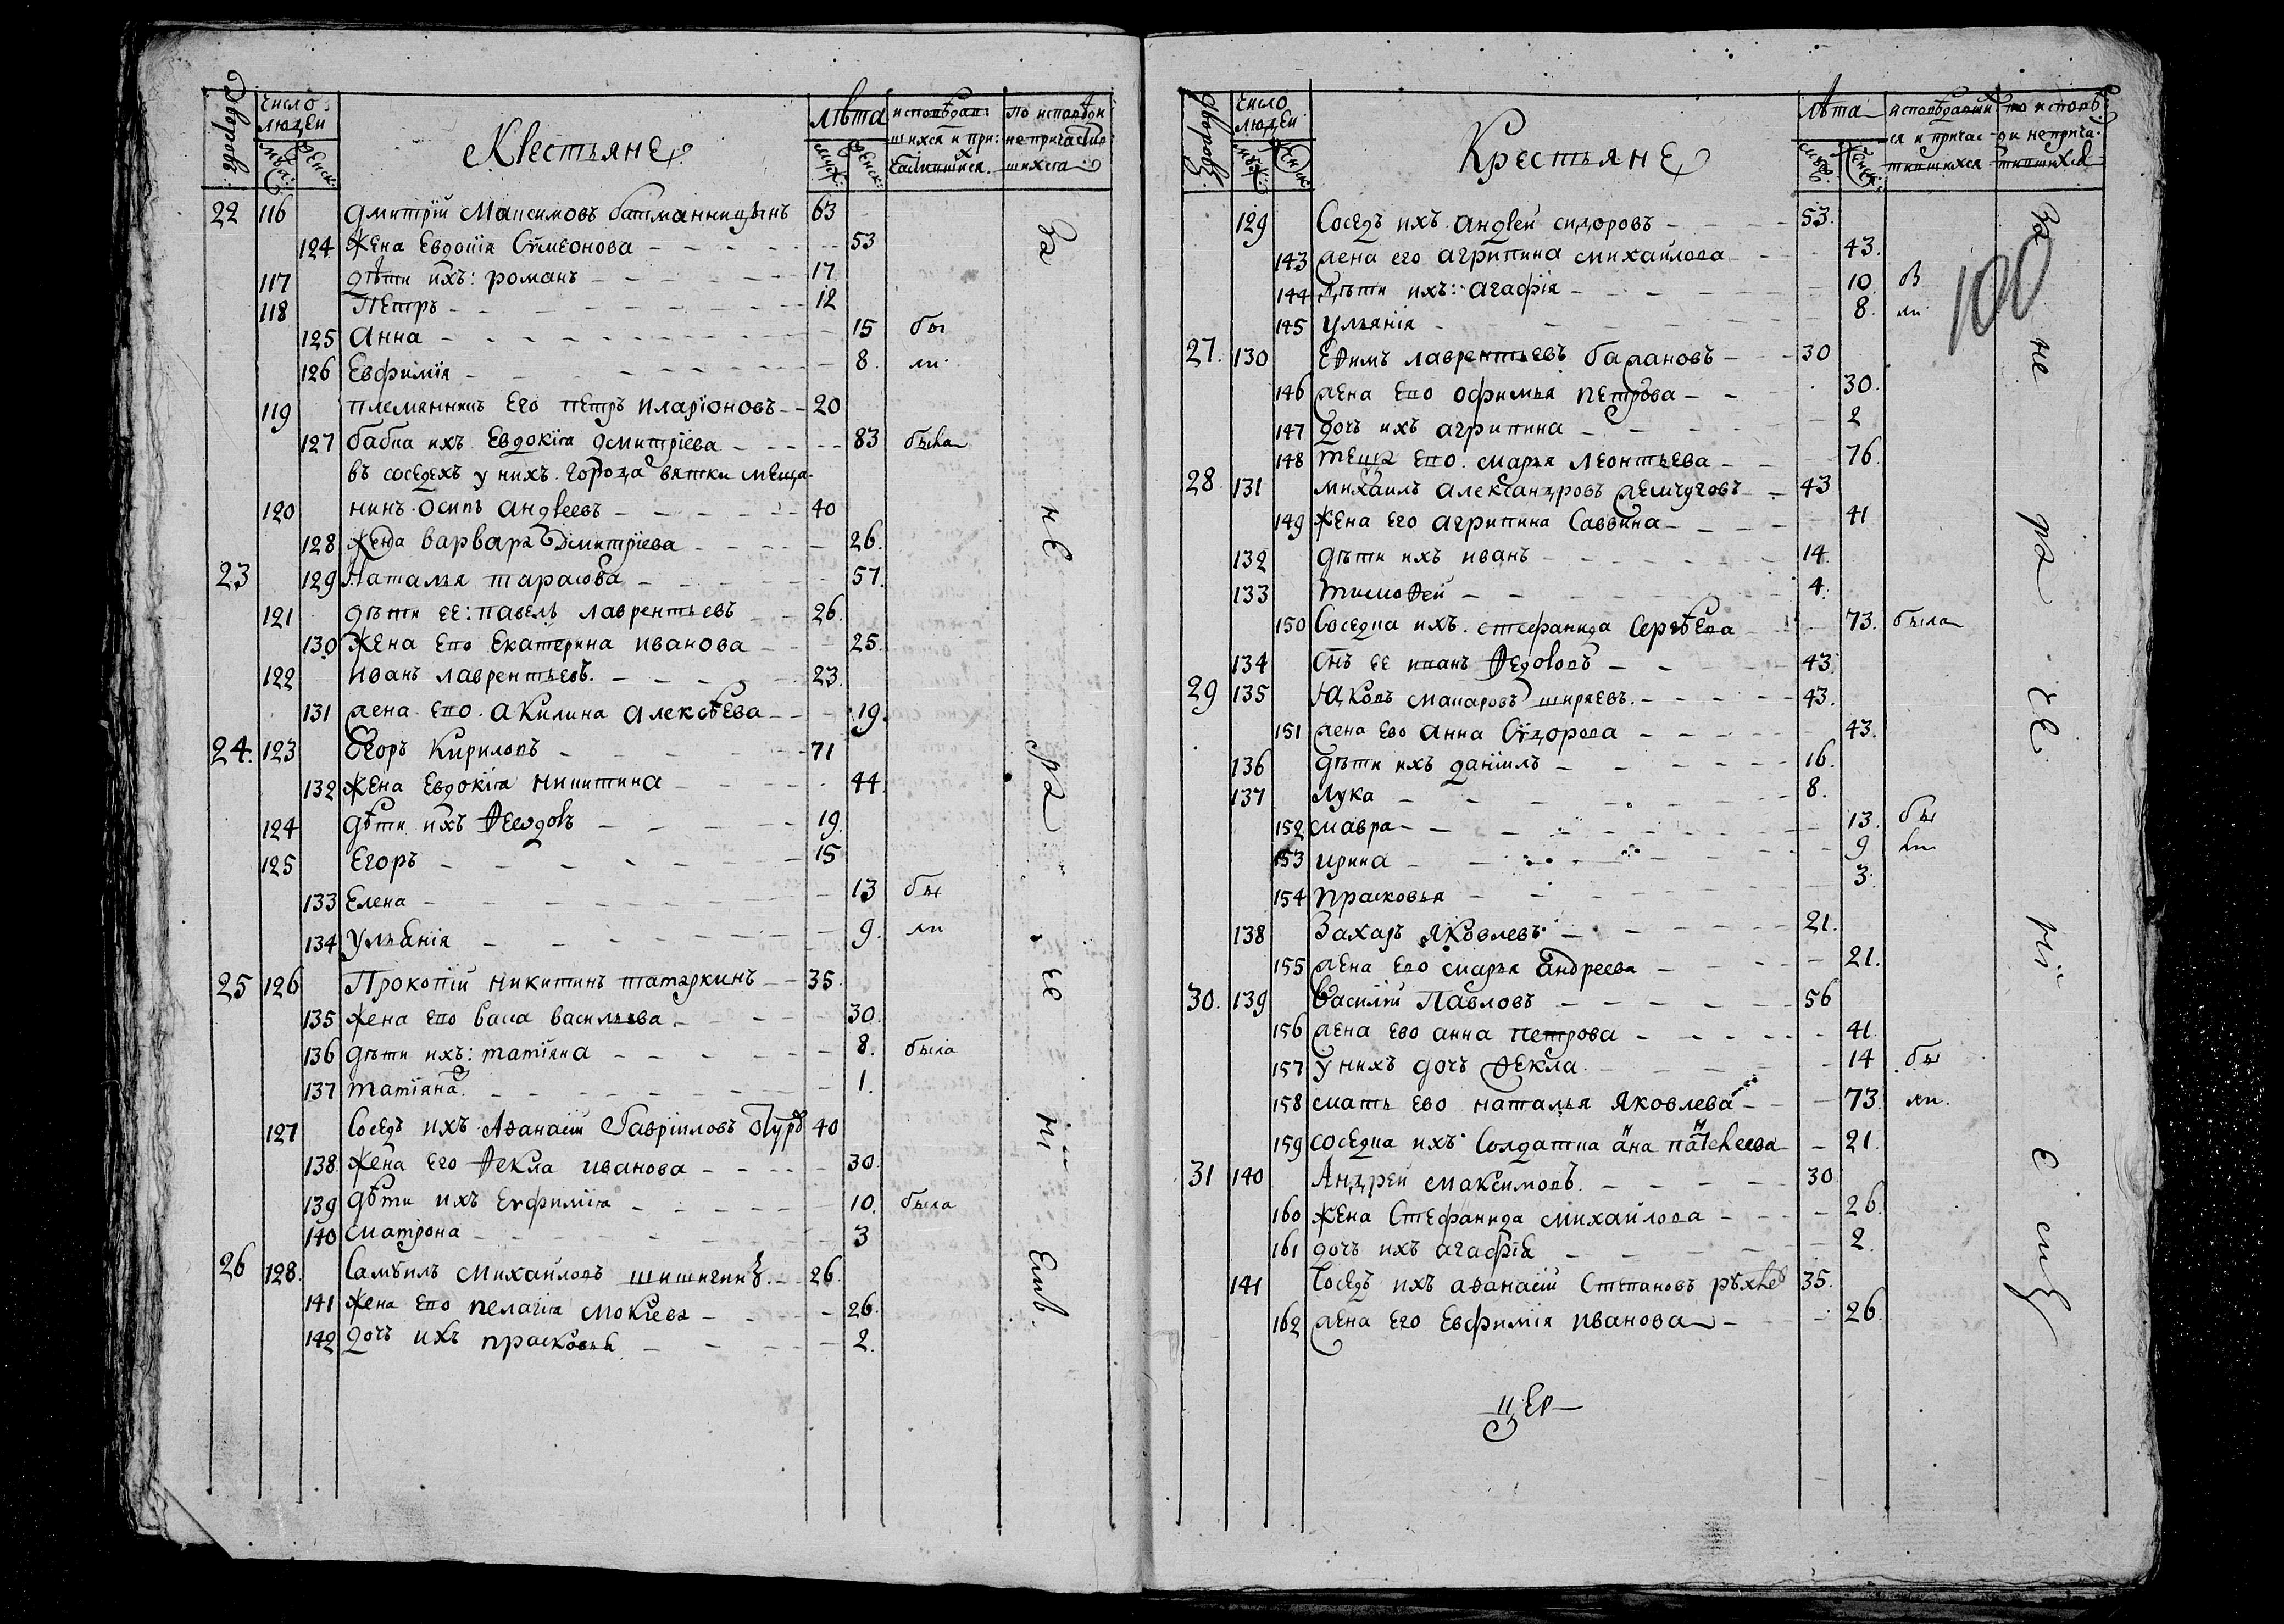 дворовъ
число людей
мужес:
женск:
Крестьяне
лѣта
муж:
женск:
исповѣдав:
шихся и при:
частившихся.
по исповѣди
не причастив
шихся
22 116 Дмитрій Максимовъ 63
124 Жена Евдокія Сѵмеонова 53
117 дѣти ихъ: романъ 17
118 Петръ 12
125 Анна 15 бы
126 Евфимія 8. ли
119 племянникъ Его петръ иларіоновъ 20
127 бабка ихъ Евдокія дмитріева 83 была
въ соседехъ у нихъ. города вятки мѣща
120 нинъ Осипъ Андреевъ 40
128 Жена варвара дмитріева 26.
23 129 Наталья тарасова 57.
121 дѣти ее: павелъ лаврентьевъ 26.
130 Жена Ево Екатерина иванова 25.
122 иванъ лаврентьевъ. 23.
131 жена Ево акилина алексѣева 19.
24. 123 Егоръ Кириловъ 71
132 жена Евдокія никитина 44.
124 дѣти ихъ Ѳеодоръ 19.
125 Егоръ 15
133 Елена 13 бы
134 Ульянія 9. ли
25 126 Прокопій никитинъ татаркинъ 35.
135 жена Ево васса васильева 30.
136 дѣти ихъ: татіяна 8. была
137 татіяна. 1.
127 Соседъ ихъ Аѳанасій Гавріиловъ 40
138 жена Его Ѳекла иванова 30.
139 дѣти ихъ Евфимія 10. была
140 матрона 3
26 128. Самуилъ михаиловъ шишигинъ. 26.
141 жена Ево пелагія мокѣева 26.
142 дочь ихъ прасковья 2.
за не ра че ні емъ.
дворовъ
число людей
муж:
женск
Крестьяне
лѣта
муж:
женск:
исповѣдавши
ся и причас
тившихся
по исповѣ
ди не прича
тившихся
100
129 Соседъ ихъ андрей сидоровъ 53.
143 жена его агрипина михаилова 43.
144 дѣти ихъ: агафія 10. бы
145 ульянія 8. ли
27. 130 Еѳимъ лаврентьевъ барановъ 30
146 жена Ево офимья петрова 30.
147 дочь ихъ агрипина 2
148 теща Ево. марья леонтьева 76.
28 131 михаилъ александровъ жемчуговъ 43
149 жена Его агрипина Саввина 41
132 дѣти ихъ иванъ 14.
133 тимоѳей 4.
150 Соседка ихъ. стефанида Сергѣева 73. была
134 сынъ ее иванъ Ѳедоровъ 43.
29 135 Яковъ макаровъ ширяевъ. 43.
151 жена Ево анна Сѵдорова 43.
136 дѣти ихъ даніилъ 16.
137 лука 8.
152 мавра 13. бы
153 ирина 9 ли
154 прасковья 3.
138 Захаръ яковлевъ 21.
155 жена Ево марья андреева 21.
30. 139 Василій Павловъ 56
156 жена Ево анна петрова 41.
157 у нихъ дочь Ѳекла. 14 бы
158 мать Ево наталья Яковлева 73. ли.
159 соседка ихъ Солдатка анна 21.
31 140 Андрей максимовъ. 30
160 жена Стефанида михаилова 26.
161 дочь ихъ агафія 2.
141 Соседъ ихъ аѳанасій Степановъ 35.
162 жена Его Евфимія иванова 26.
за не ра че ні е мъ
цер